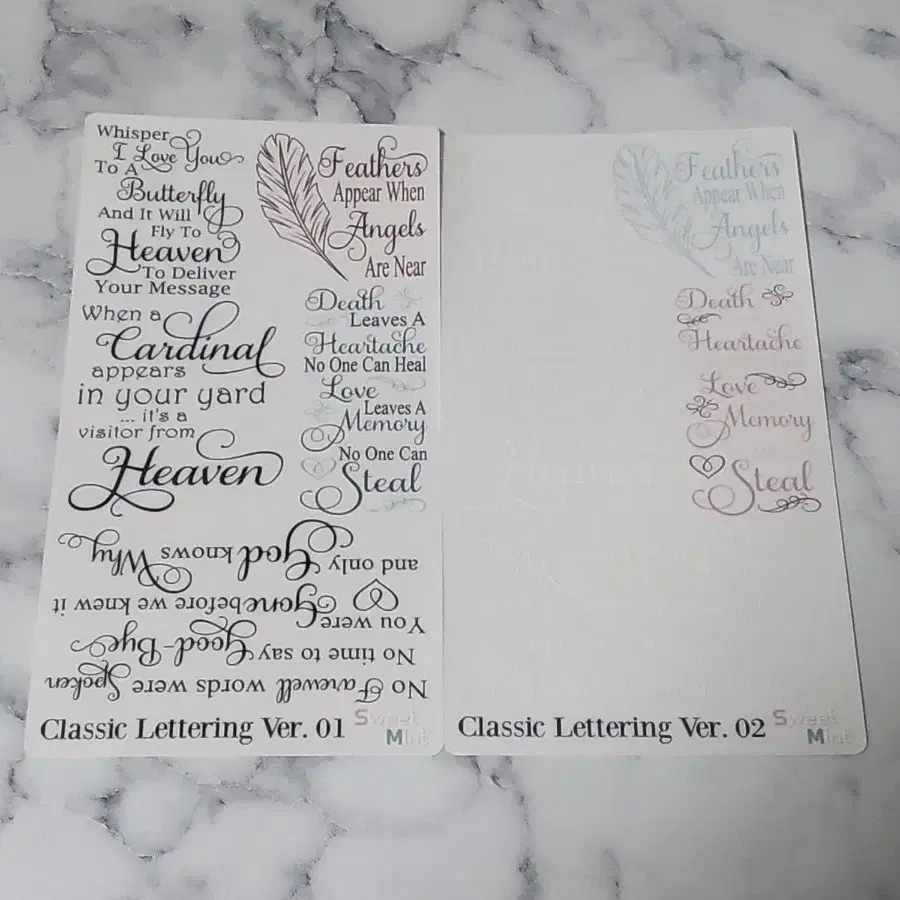 Whisper
I Love You
To A
Butterfly
And It Will
Fly To
Heaven
To Deliver
Your Message
When a
Cardinal
appears
in your yard
... it's a
visitor from
Heaven
Feathers
Appear When
Angels
Are Near
Death
Leaves A
Heartache
No One Can Heal
Love
Leaves A
Memory
No One Can
Steal
No Farewell words were Spoken
No time to say Good-Bye
You were
Gone before we knew it
and only God knows Why
Classic Lettering Ver. 01
Sweet
Mint
Feathers
Appear When
Angels
Are Near
Death
Heartache
Love
Memory
Steal
Heaven
Classic Lettering Ver. 02
Sweet
Mint